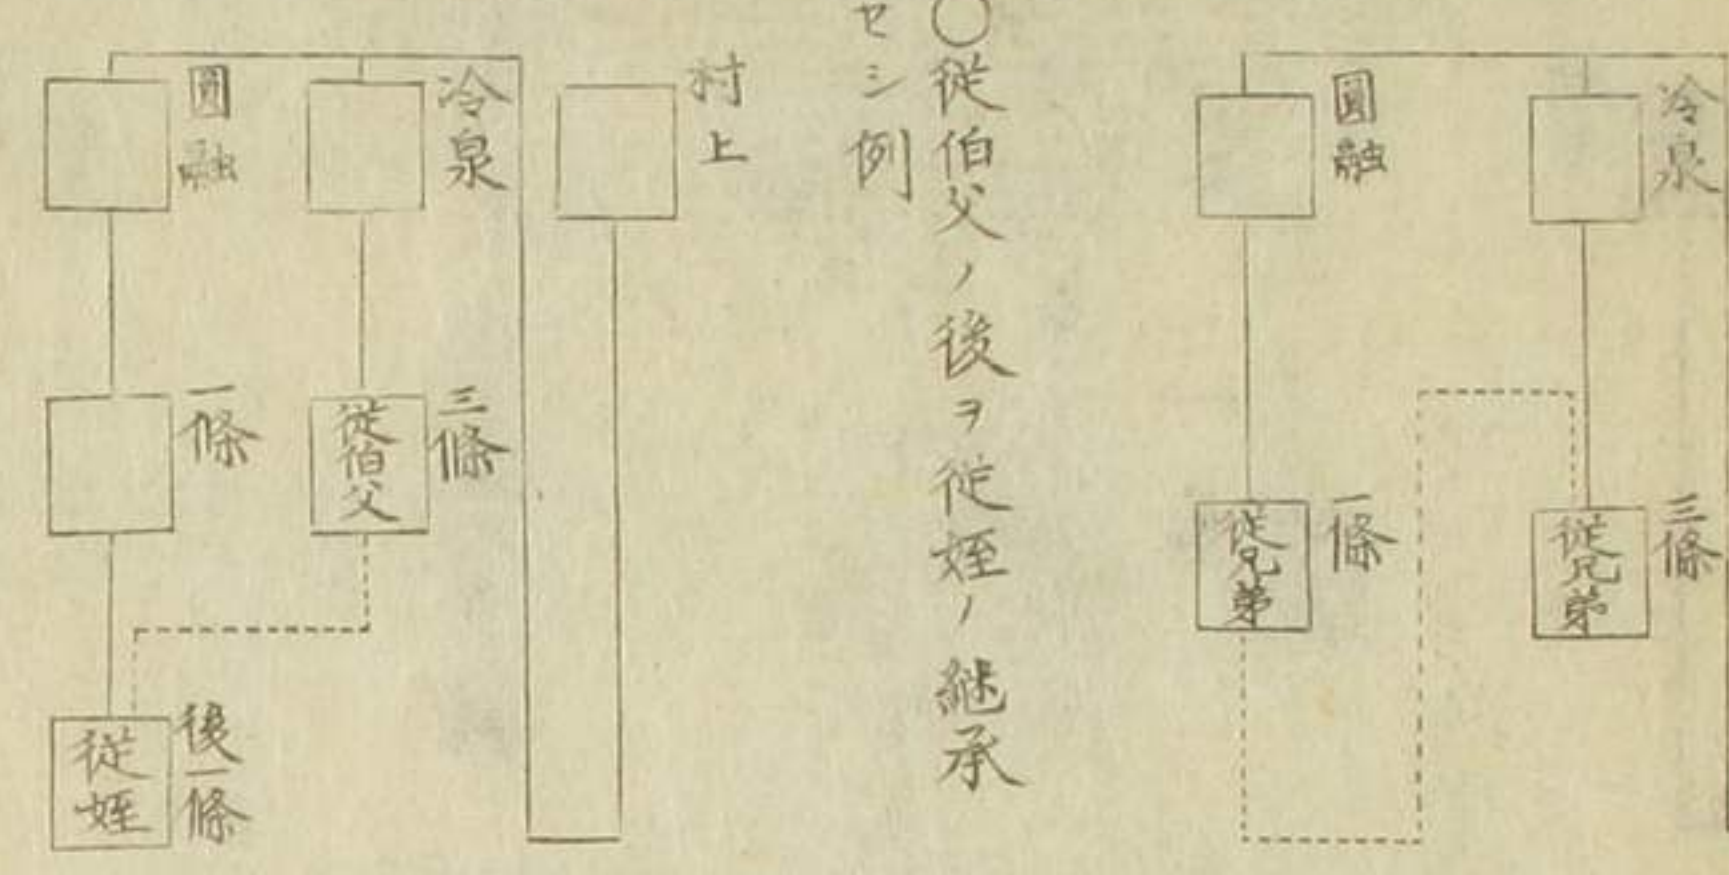 冷泉
圓融
三條
從兄弟
一條
從兄弟
○從伯父ノ後ヲ從姪ノ継承
セシ例
村上
冷泉
圓融
三條
從伯父
一條
後一條
從姪